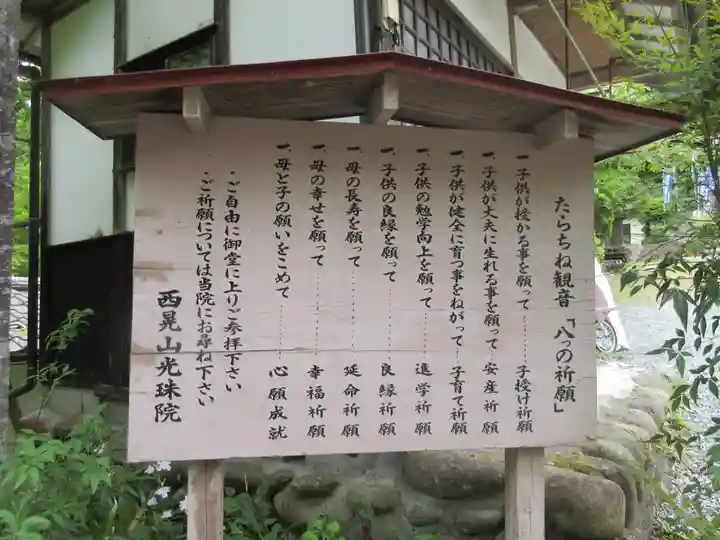 たらちね観音「八つの祈願」
一、子供が授かる事を願って……子授け祈願
一、子供が丈夫に生れる事を願って……安産祈願
一、子供が健全に育つ事をねがって……子育て祈願
一、子供の勉学向上を願って……進学祈願
一、子供の良縁を願って……良縁祈願
一、母の長寿を願って……延命祈願
一、母の幸せを願って……幸福祈願
一、母と子の願いをこめて……心願成就
・ご自由に御堂に上りご参拝下さい
・ご祈願については当院にお尋ね下さい
西晃山光珠院